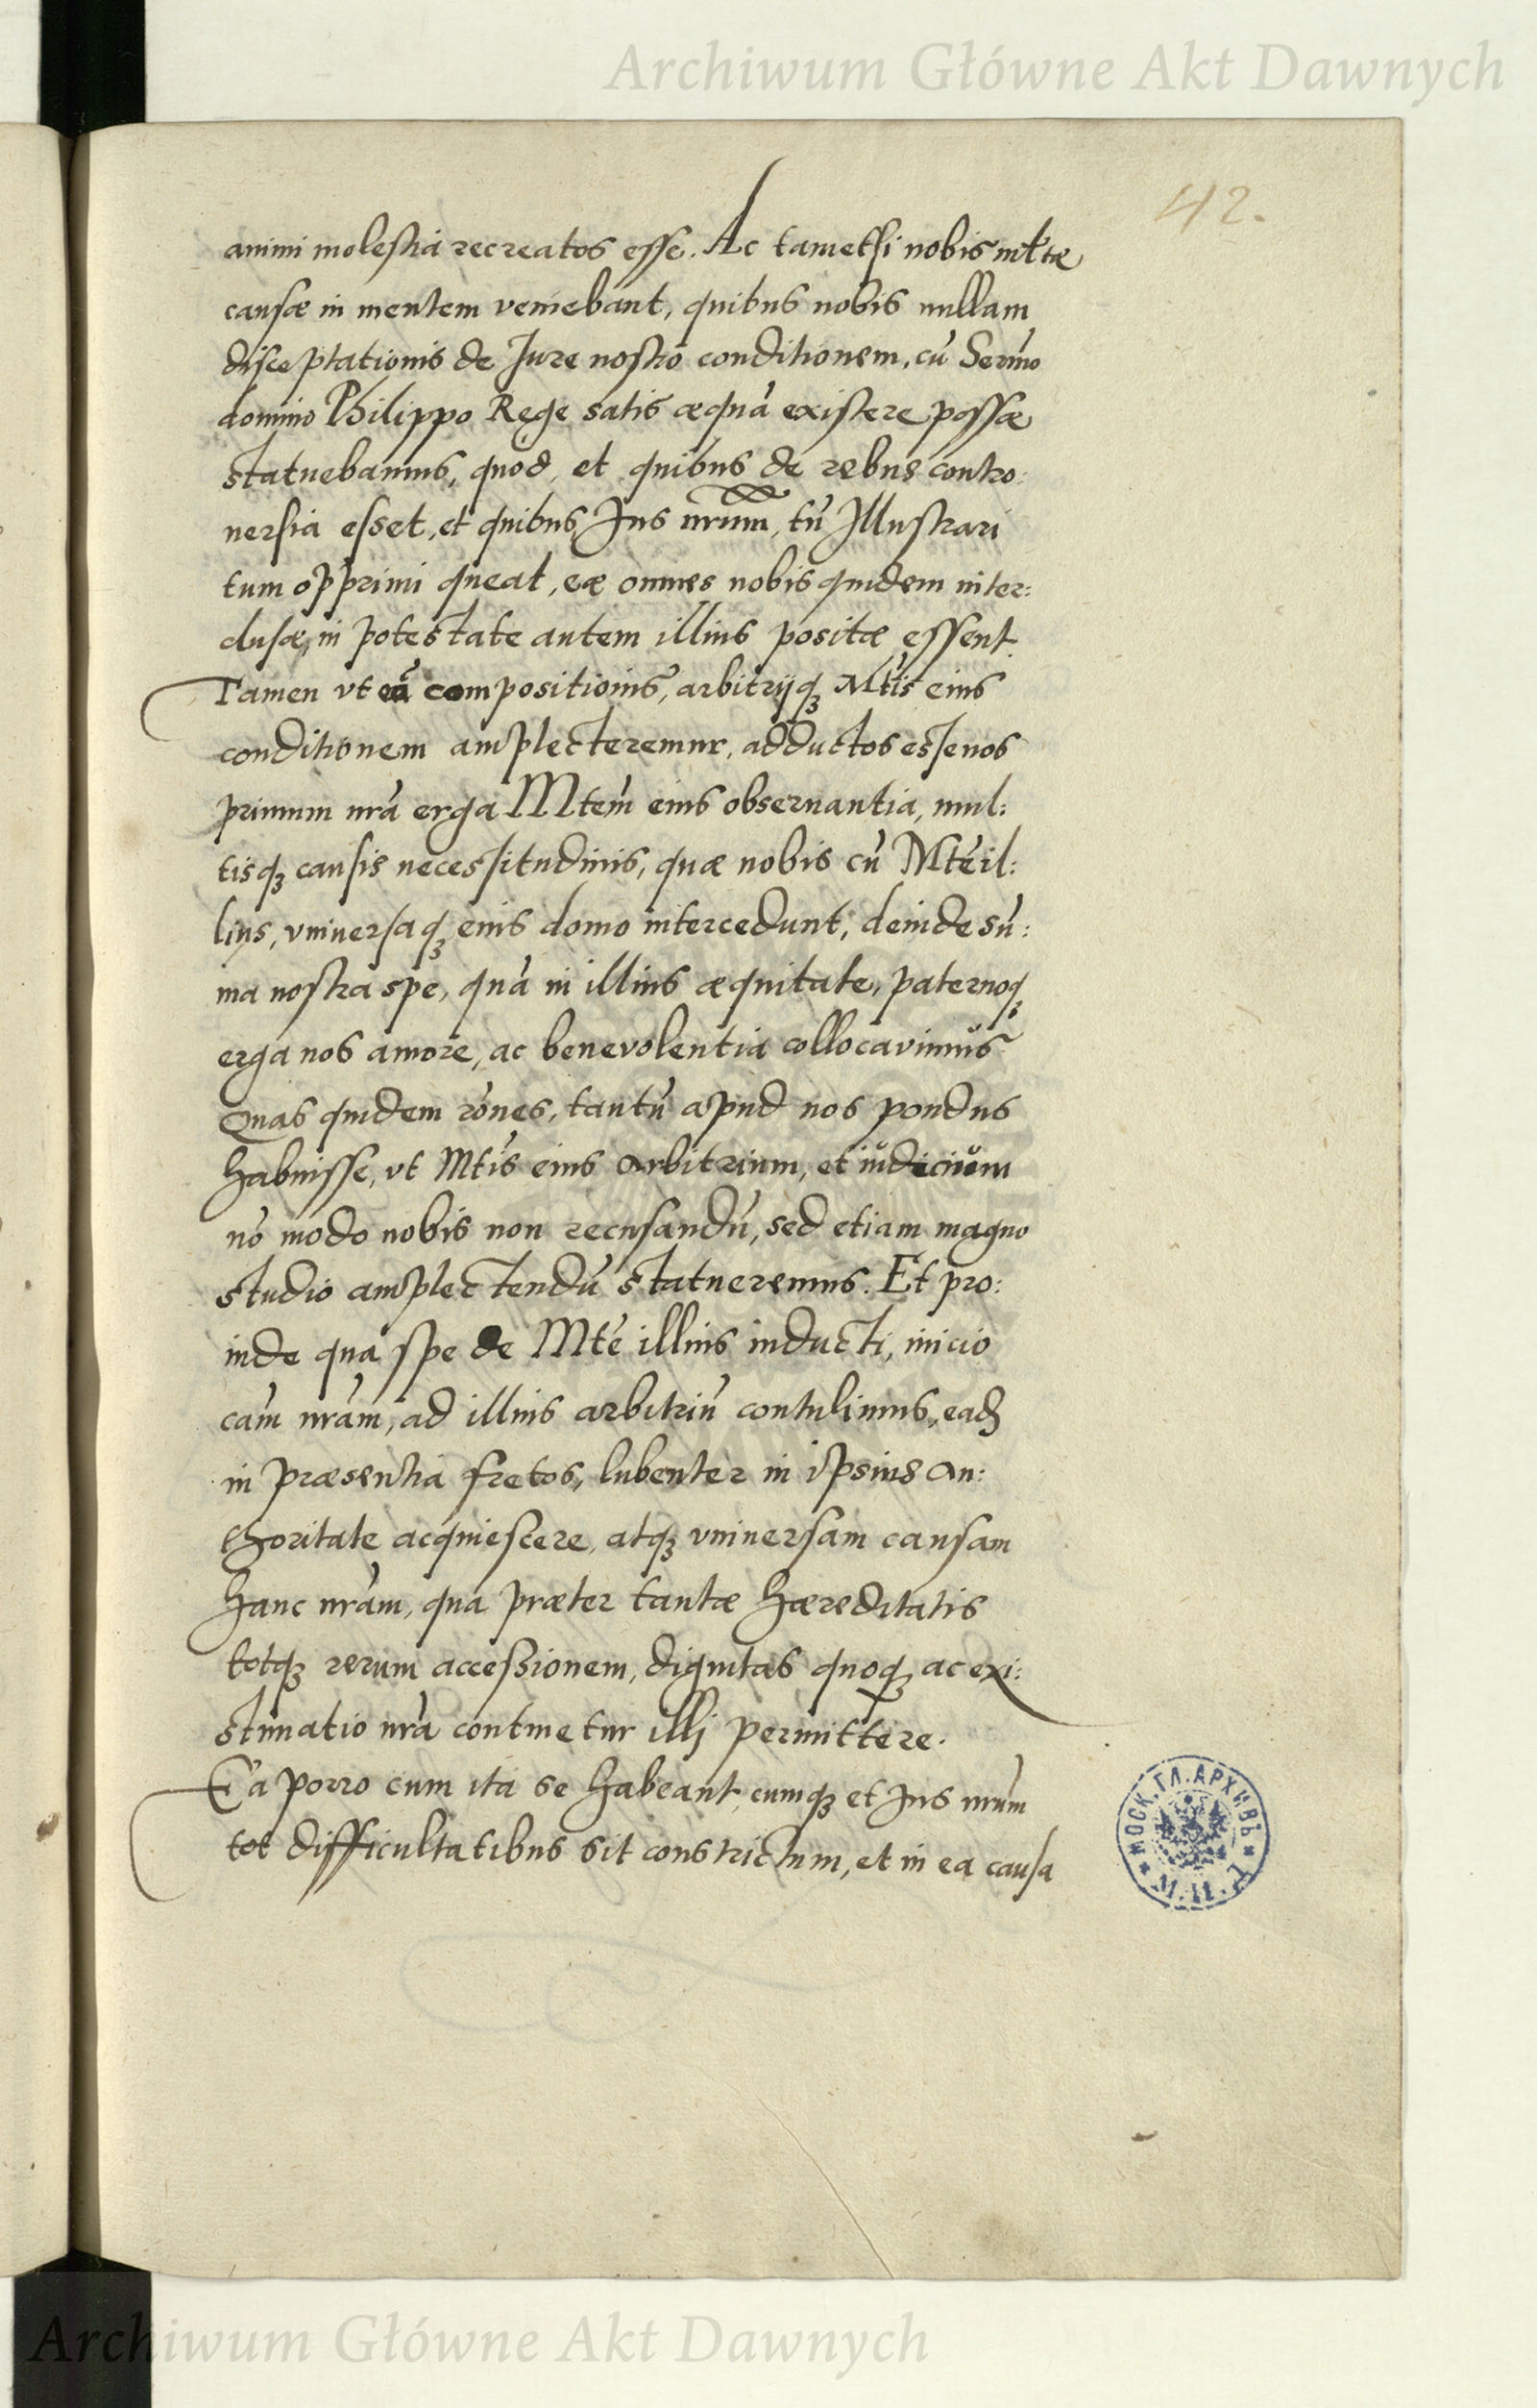 Archiwum Główne Akt Dawnych
42.
animi molestia recreatos esse. Ac tametsi nobis mltæ
causæ in mentem veniebant, quibus nobis nullam
disceptationis de Jure nostro conditionem, cù Sermo
domino Philippo Rege satis æquà existere possæ
statuebamus, quod, et quibus de rebus contro:
uersia esset, et quibus Jus nrum, tù Illustrari
tum opprimi queat, eæ omnes nobis quidem inter:
clusæ, in potestate autem illius positæ essent.
Tamen vt eà compositionis, arbitrijq3 Mtis eius
conditionem amplecteremur, adductos esse nos
primum nrà erga Mtem eius obseruantia, mul:
tisq3 causis necessitudinis, quæ nobis cù Mte il:
lius, vniuersaq3 eius domo intercedunt, deinde sù:
ma nostra spe, quà in illius æquitate, paternoq3
erga nos amore, ac benevolentia collocavimus
Quas quidem rònes, tantù apud nos pondus
habuisse, vt Mtis eius arbitrium, et iudicium
nò modo nobis non recusandù, sed etiam magno
studio amplectendù statueremus. Et pro:
inde qua spe de Mte illius inducti, inicio
cam nram, ad illius arbitriù contulimus, ead
in præsentia fretos, lubenter in ipsius au:
thoritate acquiescere, atq3 vniuersam causam
hanc nram, qua præter tantæ hæreditatis
totq3 rerum accessionem, dignitas quoq3 ac exi:
stimatio nrà continetur illi permittere.
Ea porro cum ita se habeant, cumq3 et Jus nrum
tot difficultatibus sit constrictum, et in ea causa
МОСК. ГЛ. АРХИВЪ
Archiwum Główne Akt Dawnych